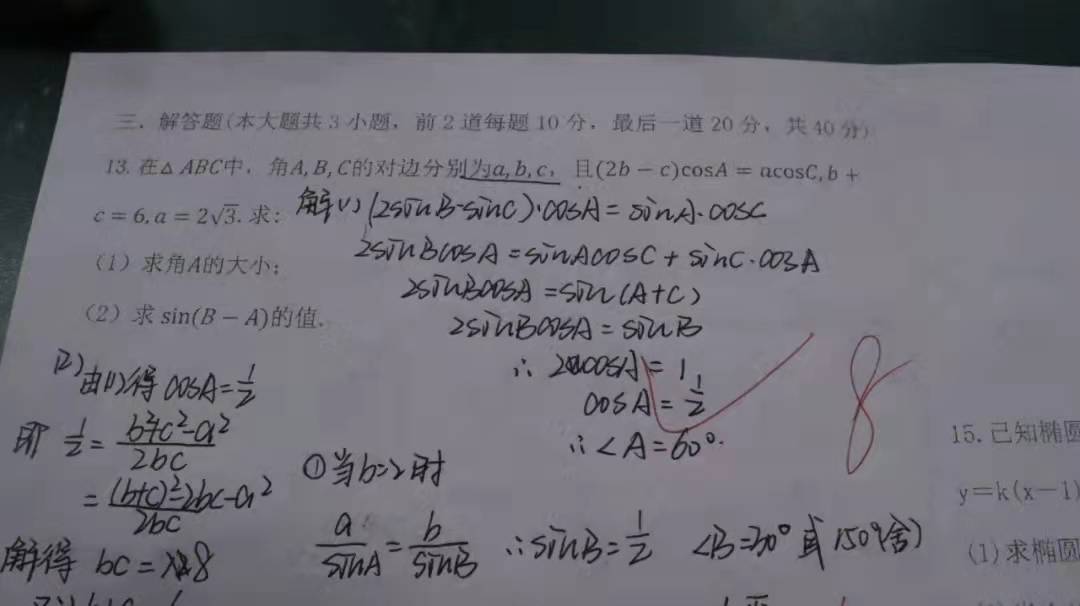 三．解答题(本大题共3小题，前2道每题10分，最后一道20分，共40分)
13.在△ABC中，角A,B,C的对边分别为a,b,c，且(2b－c)cosA＝acosC,b＋
c＝6,a＝2√3.求：
(1) 求角A的大小；
(2) 求sin(B－A)的值.
解(1) (2sinB-sinC)·cosA=sinA·cosC
2sinBcosA=sinAcosC+sinC·cosA
2sinBcosA=sin(A+C)
2sinBcosA=sinB
∴ 2cosA=1
cosA=1/2
∴∠A=60°.
8
(2) 由(1)得 cosA=1/2
即 1/2=(b²+c²-a²)/2bc
=((b+c)²-2bc-a²)/2bc
解得 bc=8
①当b=2时
a/sinA=b/sinB ∴sinB=1/2 ∠B=30°或150°(舍)
15.已知椭圆
y＝k(x－1)
(1)求椭圆